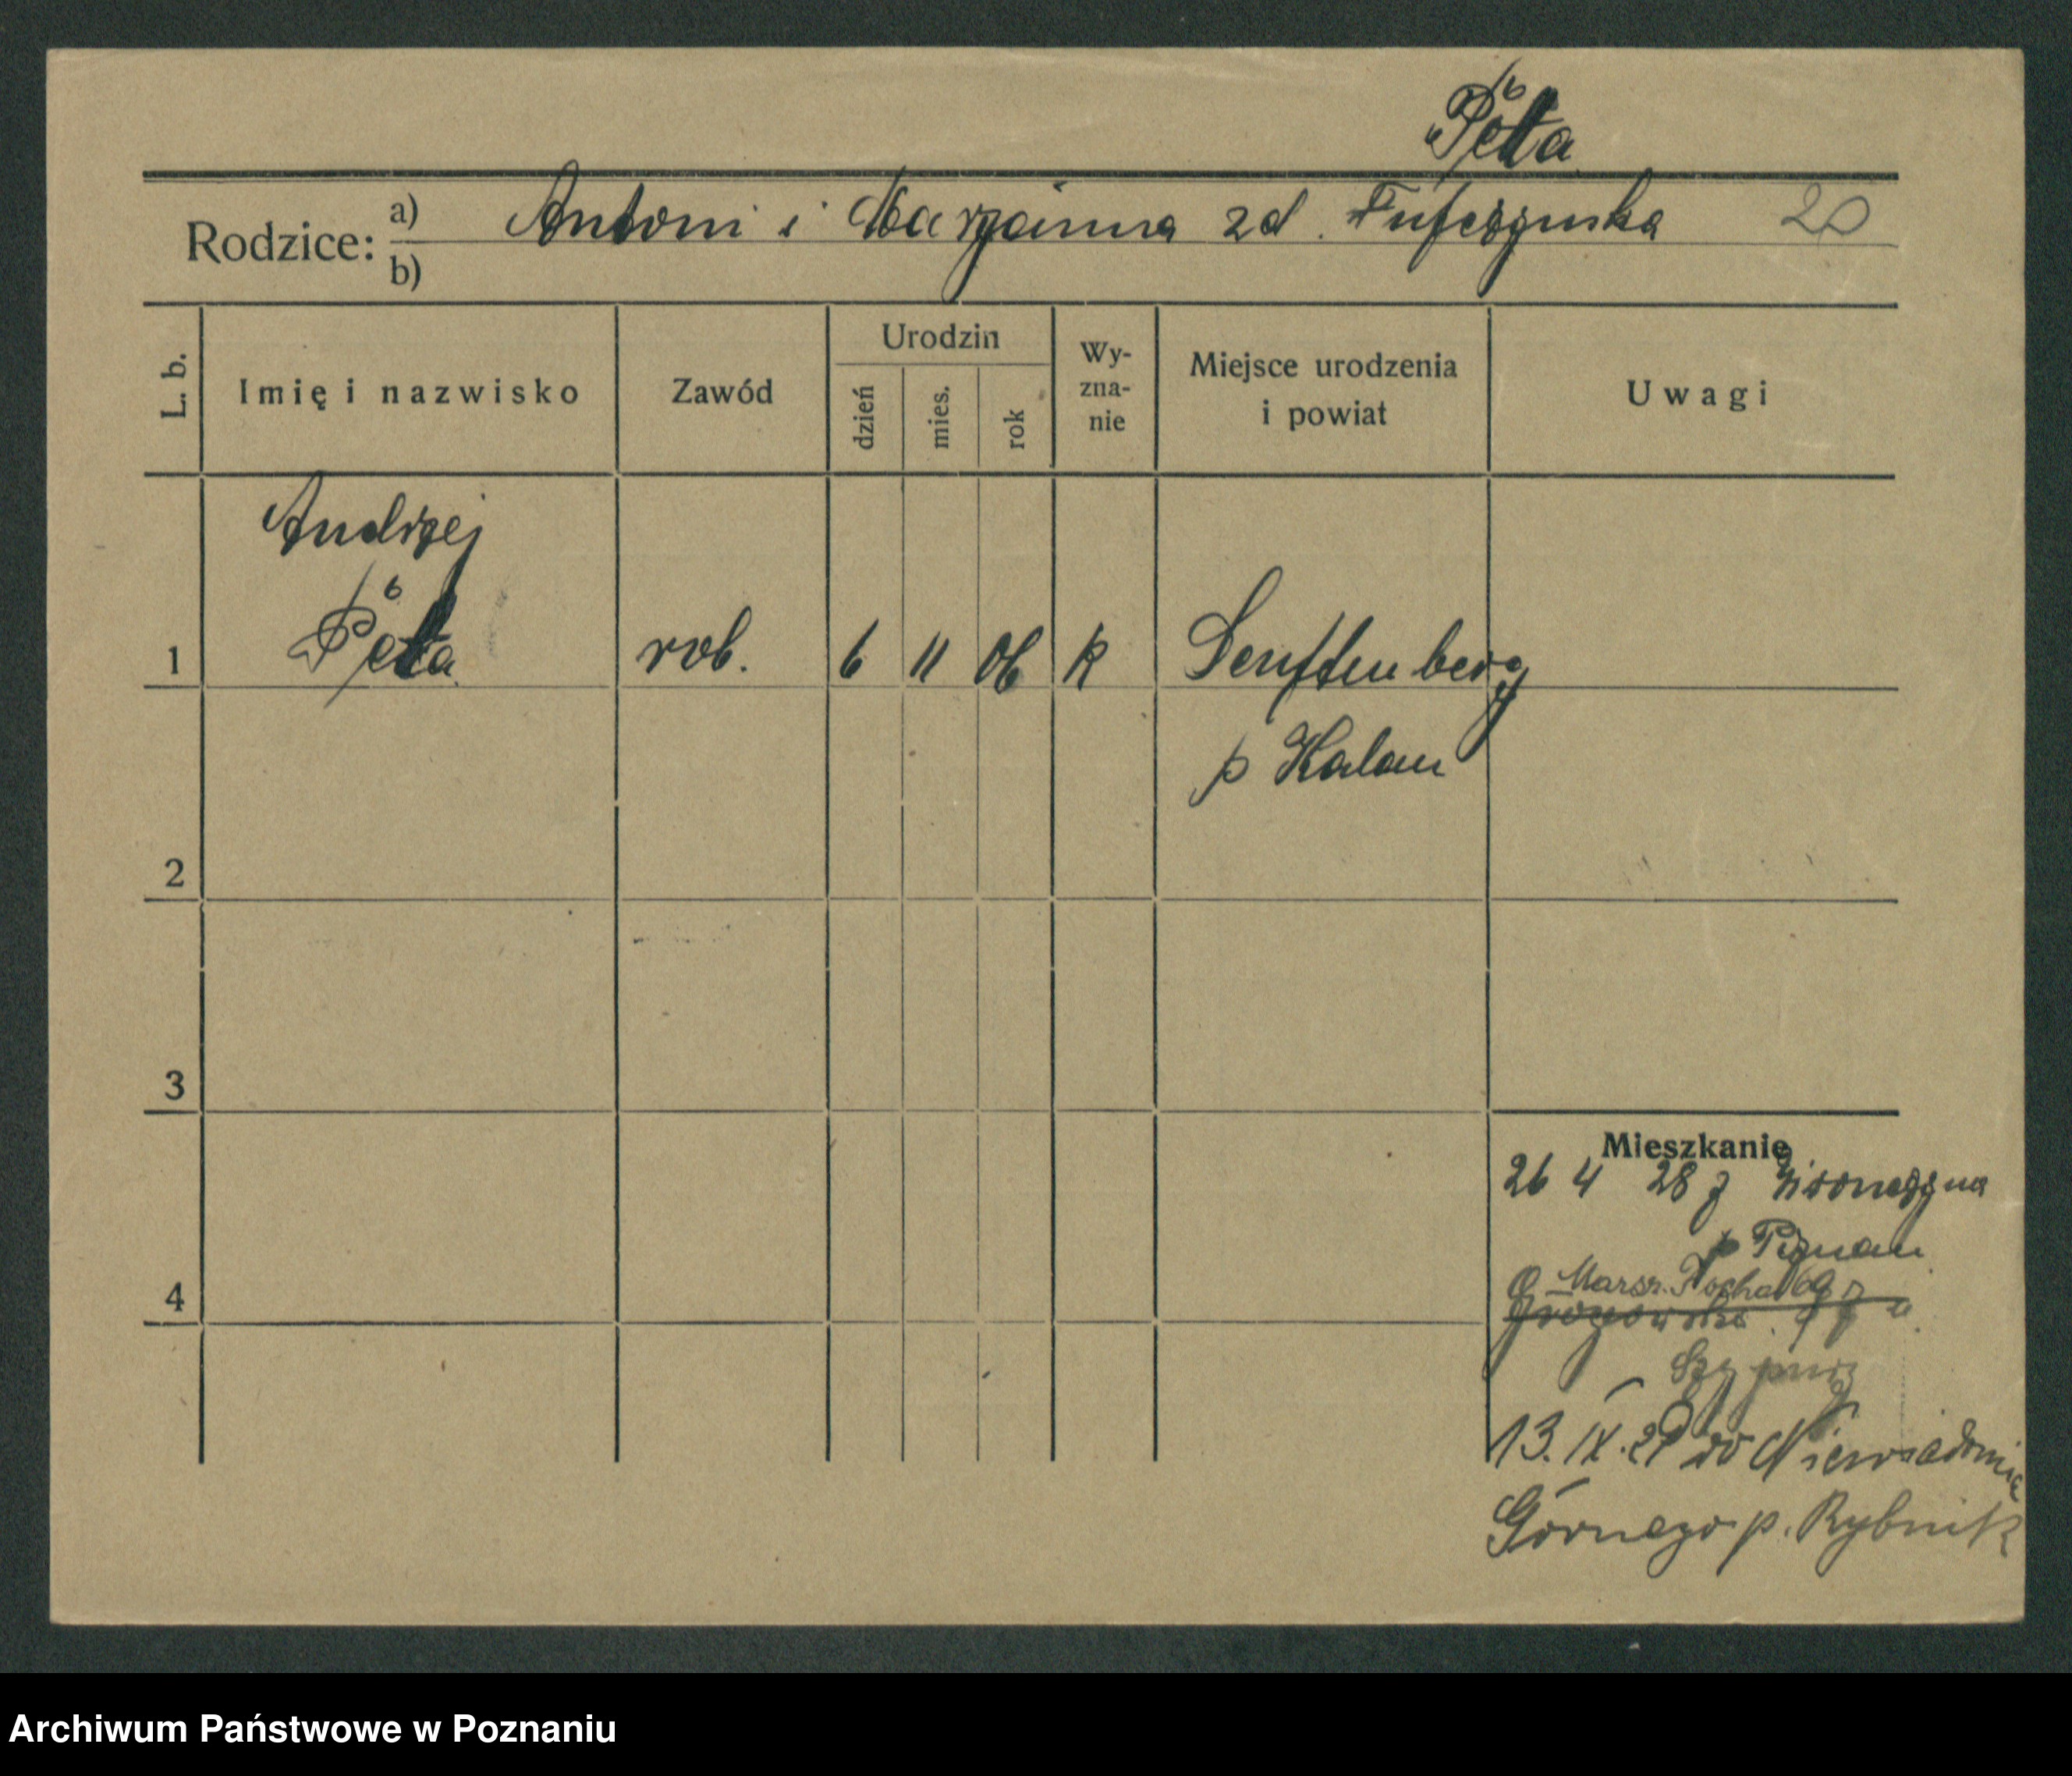 Pełta
Rodzice: a) Antoni i Maryanna zd. Tufczynska 20
b)
L. b.
Imię i nazwisko
Zawód
Urodzin
dzień
mies.
rok
Wy-
zna-
nie
Miejsce urodzenia
i powiat
Uwagi
Andrzej
1 Pełta rob. 6 11 06 K Senftenberg
p Kalau
2
3
Mieszkanie
26 4 28 z
p Poznan
Marsz. Focha 69
4
13. IX. 29 do Niewiadomia
Górnego p. Rybnik
Archiwum Państwowe w Poznaniu